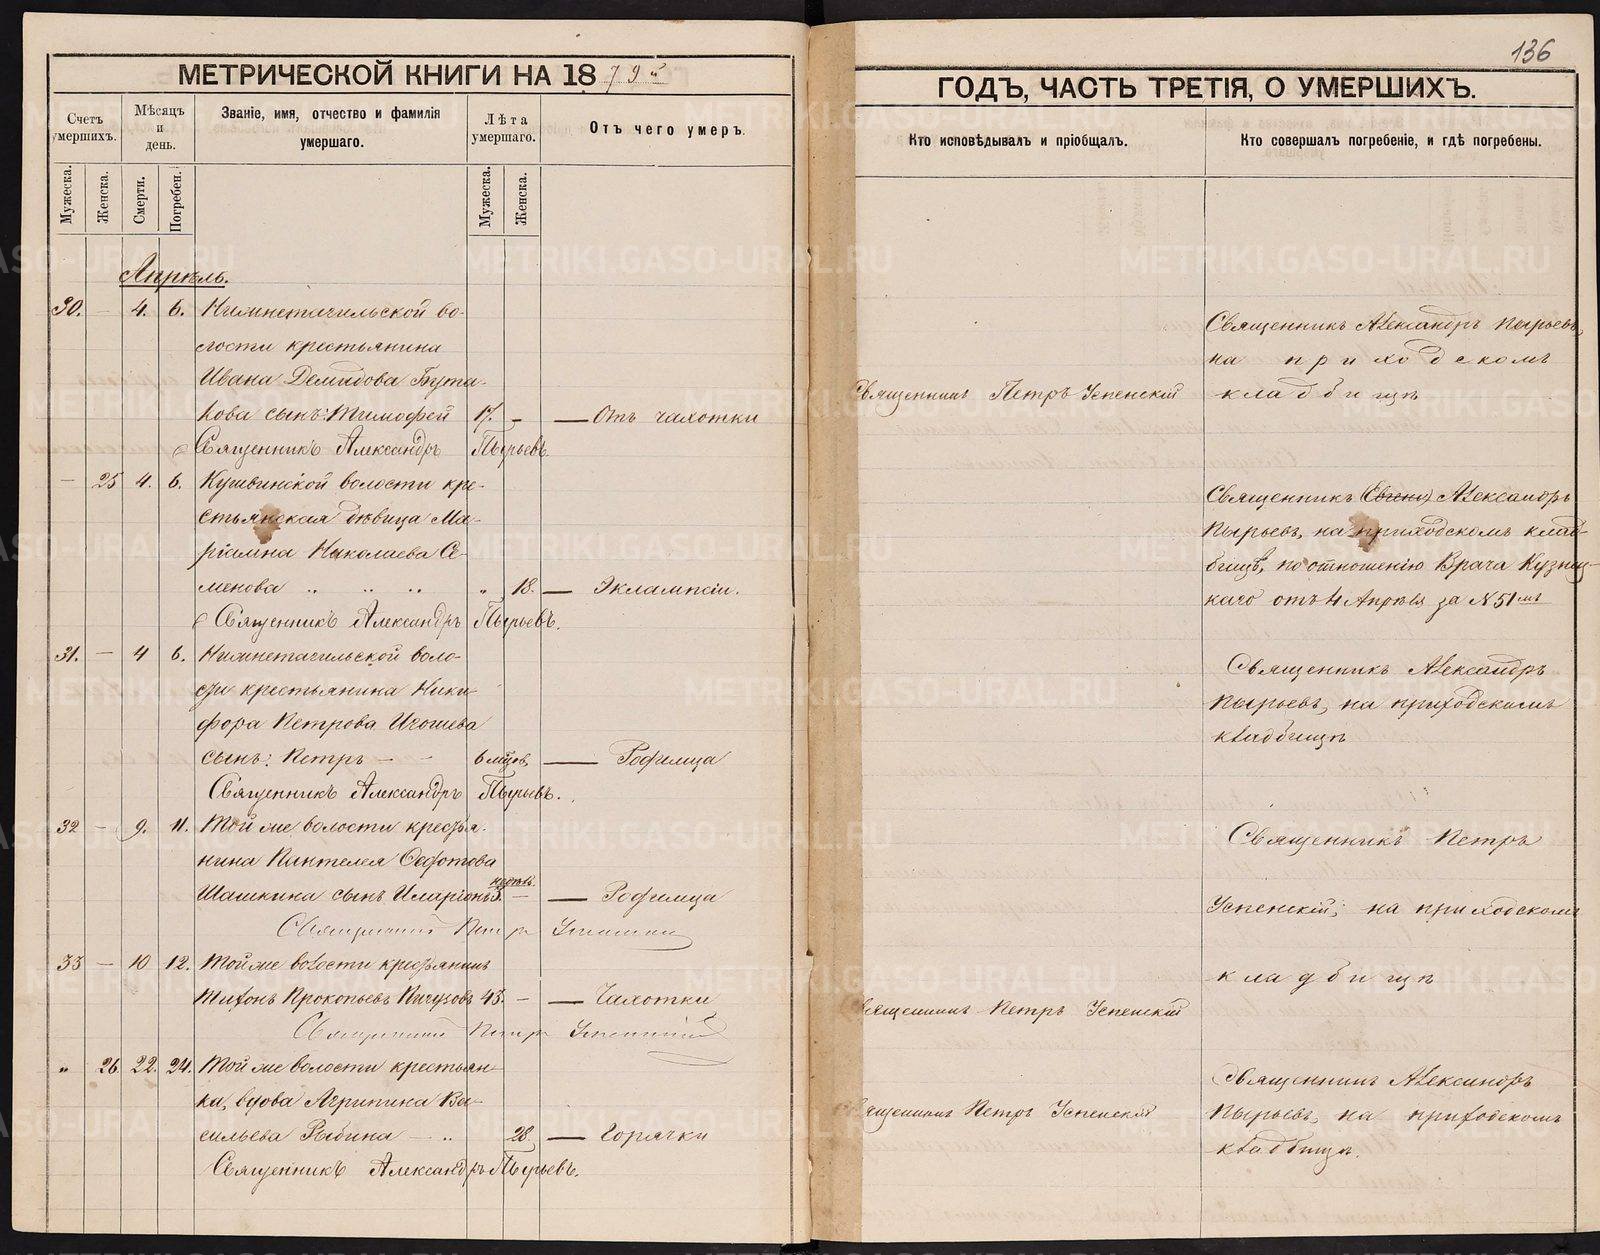 136
МЕТРИЧЕСКОЙ КНИГИ НА 1879й
ГОДЪ, ЧАСТЬ ТРЕТІЯ, О УМЕРШИХЪ.
Счетъ умершихъ.
Мѣсяцъ и день.
Званіе, имя, отчество и фамилія умершаго.
Лѣта умершаго.
Отъ чего умеръ.
Кто исповѣдывалъ и пріобщалъ.
Кто совершалъ погребеніе, и гдѣ погребены.
Мужеска.
Женска.
Смерти.
Погребен.
Мужеска.
Женска.
Апрѣль.
30. - 4. 6. Нижнетагильской во-
лости крестьянина
Ивана Демидова Бута-
кова сынъ: Тимофей 17. - — Отъ чахотки
Священникъ Александръ Пырьевъ.
Священникъ Петръ Успенскій
Священникъ Александръ Пырьевъ,
на приходскомъ
кладбищѣ
- 25 4. 6. Кушвинской волости кре-
стьянская дѣвица Ма-
ріанна Николаева Се-
менова „ „ „ „ 18. — Эклампсіи.
Священникъ Александръ Пырьевъ.
Священникъ (Евгени) Александръ
Пырьевъ, на приходскомъ клад-
бищѣ, по отношенію Врача Кузнец-
каго отъ 4 Апрѣля за № 51мъ
31. - 4 6. Нижнетагильской воло-
сти крестьянина Ники-
фора Петрова Игошева
сынъ: Петръ - - 6 мцовъ — Родимца
Священникъ Александръ Пырьевъ.
Священникъ Александръ
Пырьевъ, на приходскомъ
кладбищѣ
32 - 9. 11. Той же волости крестья-
нина Пантелея Ѳедотова
Шашкина сынъ Иларіонъ 3. недѣль - — Родимца
Священникъ Петръ Успенскій
Священникъ Петръ
Успенскій, на приходскомъ
кладбищѣ
33 - 10 12. Той же волости крестьянинъ
Тихонъ Прокопьевъ Пичуговъ 43. - — Чахотки
Священникъ Петръ Успенскій
Священникъ Петръ Успенскій
„ 26. 22. 24. Той же волости крестьян-
ка, вдова Агрипина Ва-
сильева Рыбина - „ 28. — Горячки
Священникъ Александръ Пырьевъ.
Священникъ Петръ Успенскій
Священникъ Александръ
Пырьевъ, на приходскомъ
кладбищѣ.
METRIKI.GASO-URAL.RU